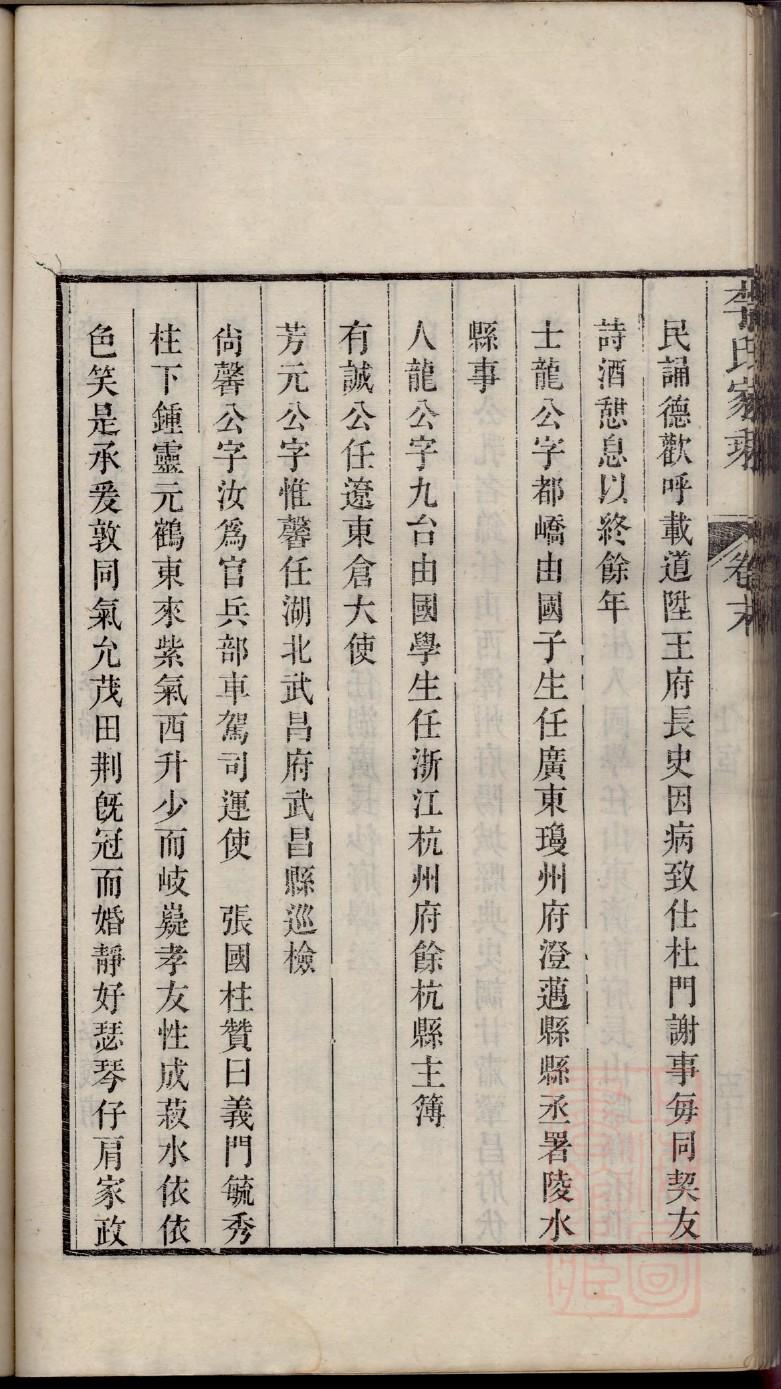 李氏家乘 卷末
民誦德歡呼載道陞王府長史因病致仕杜門謝事每同契友
詩酒憩息以終餘年
士龍公字都嶠由國子生任廣東瓊州府澄邁縣縣丞署陵水
縣事
人龍公字九台由國學生任浙江杭州府餘杭縣主簿
有誠公任遼東倉大使
芳元公字惟馨任湖北武昌府武昌縣巡檢
尙馨公字汝爲官兵部車駕司運使　張國柱贊曰義門毓秀
柱下鍾靈元鶴東來紫氣西升少而岐嶷孝友性成菽水依依
色笑是承爰敦同氣允茂田荆旣冠而婚靜好瑟琴仔肩家政